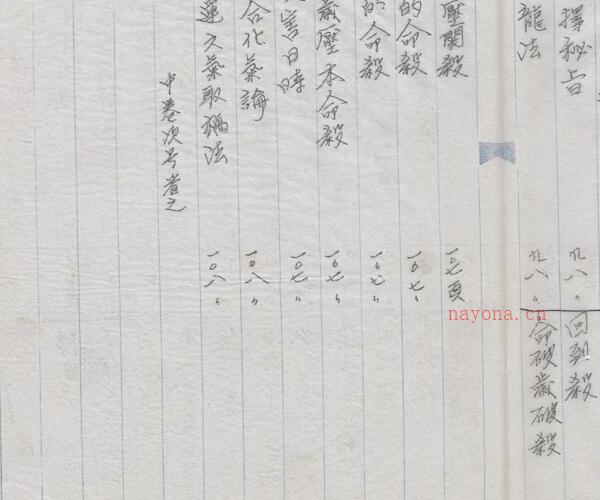 擇秘旨 九八〃 回到殺
龍法 九八〃 命破歲破殺
壓闌殺 一〇七頁
的命殺 一〇七〃
的命殺 一〇七〃
歲壓本命殺 一〇七〃
害日時 一〇七〃
合化氣論 一〇八〃
運久氣取禍法 一〇八〃
中卷次另者之
nayona.cn